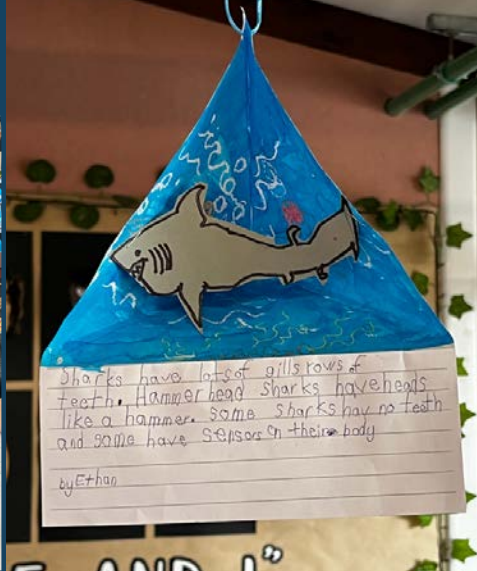 Sharks have lots of gills rows of
teeth. Hammer head sharks have heads
like a hammer. Some sharks hav no teeth
and some have sensors on their body
by Ethan
AND I"